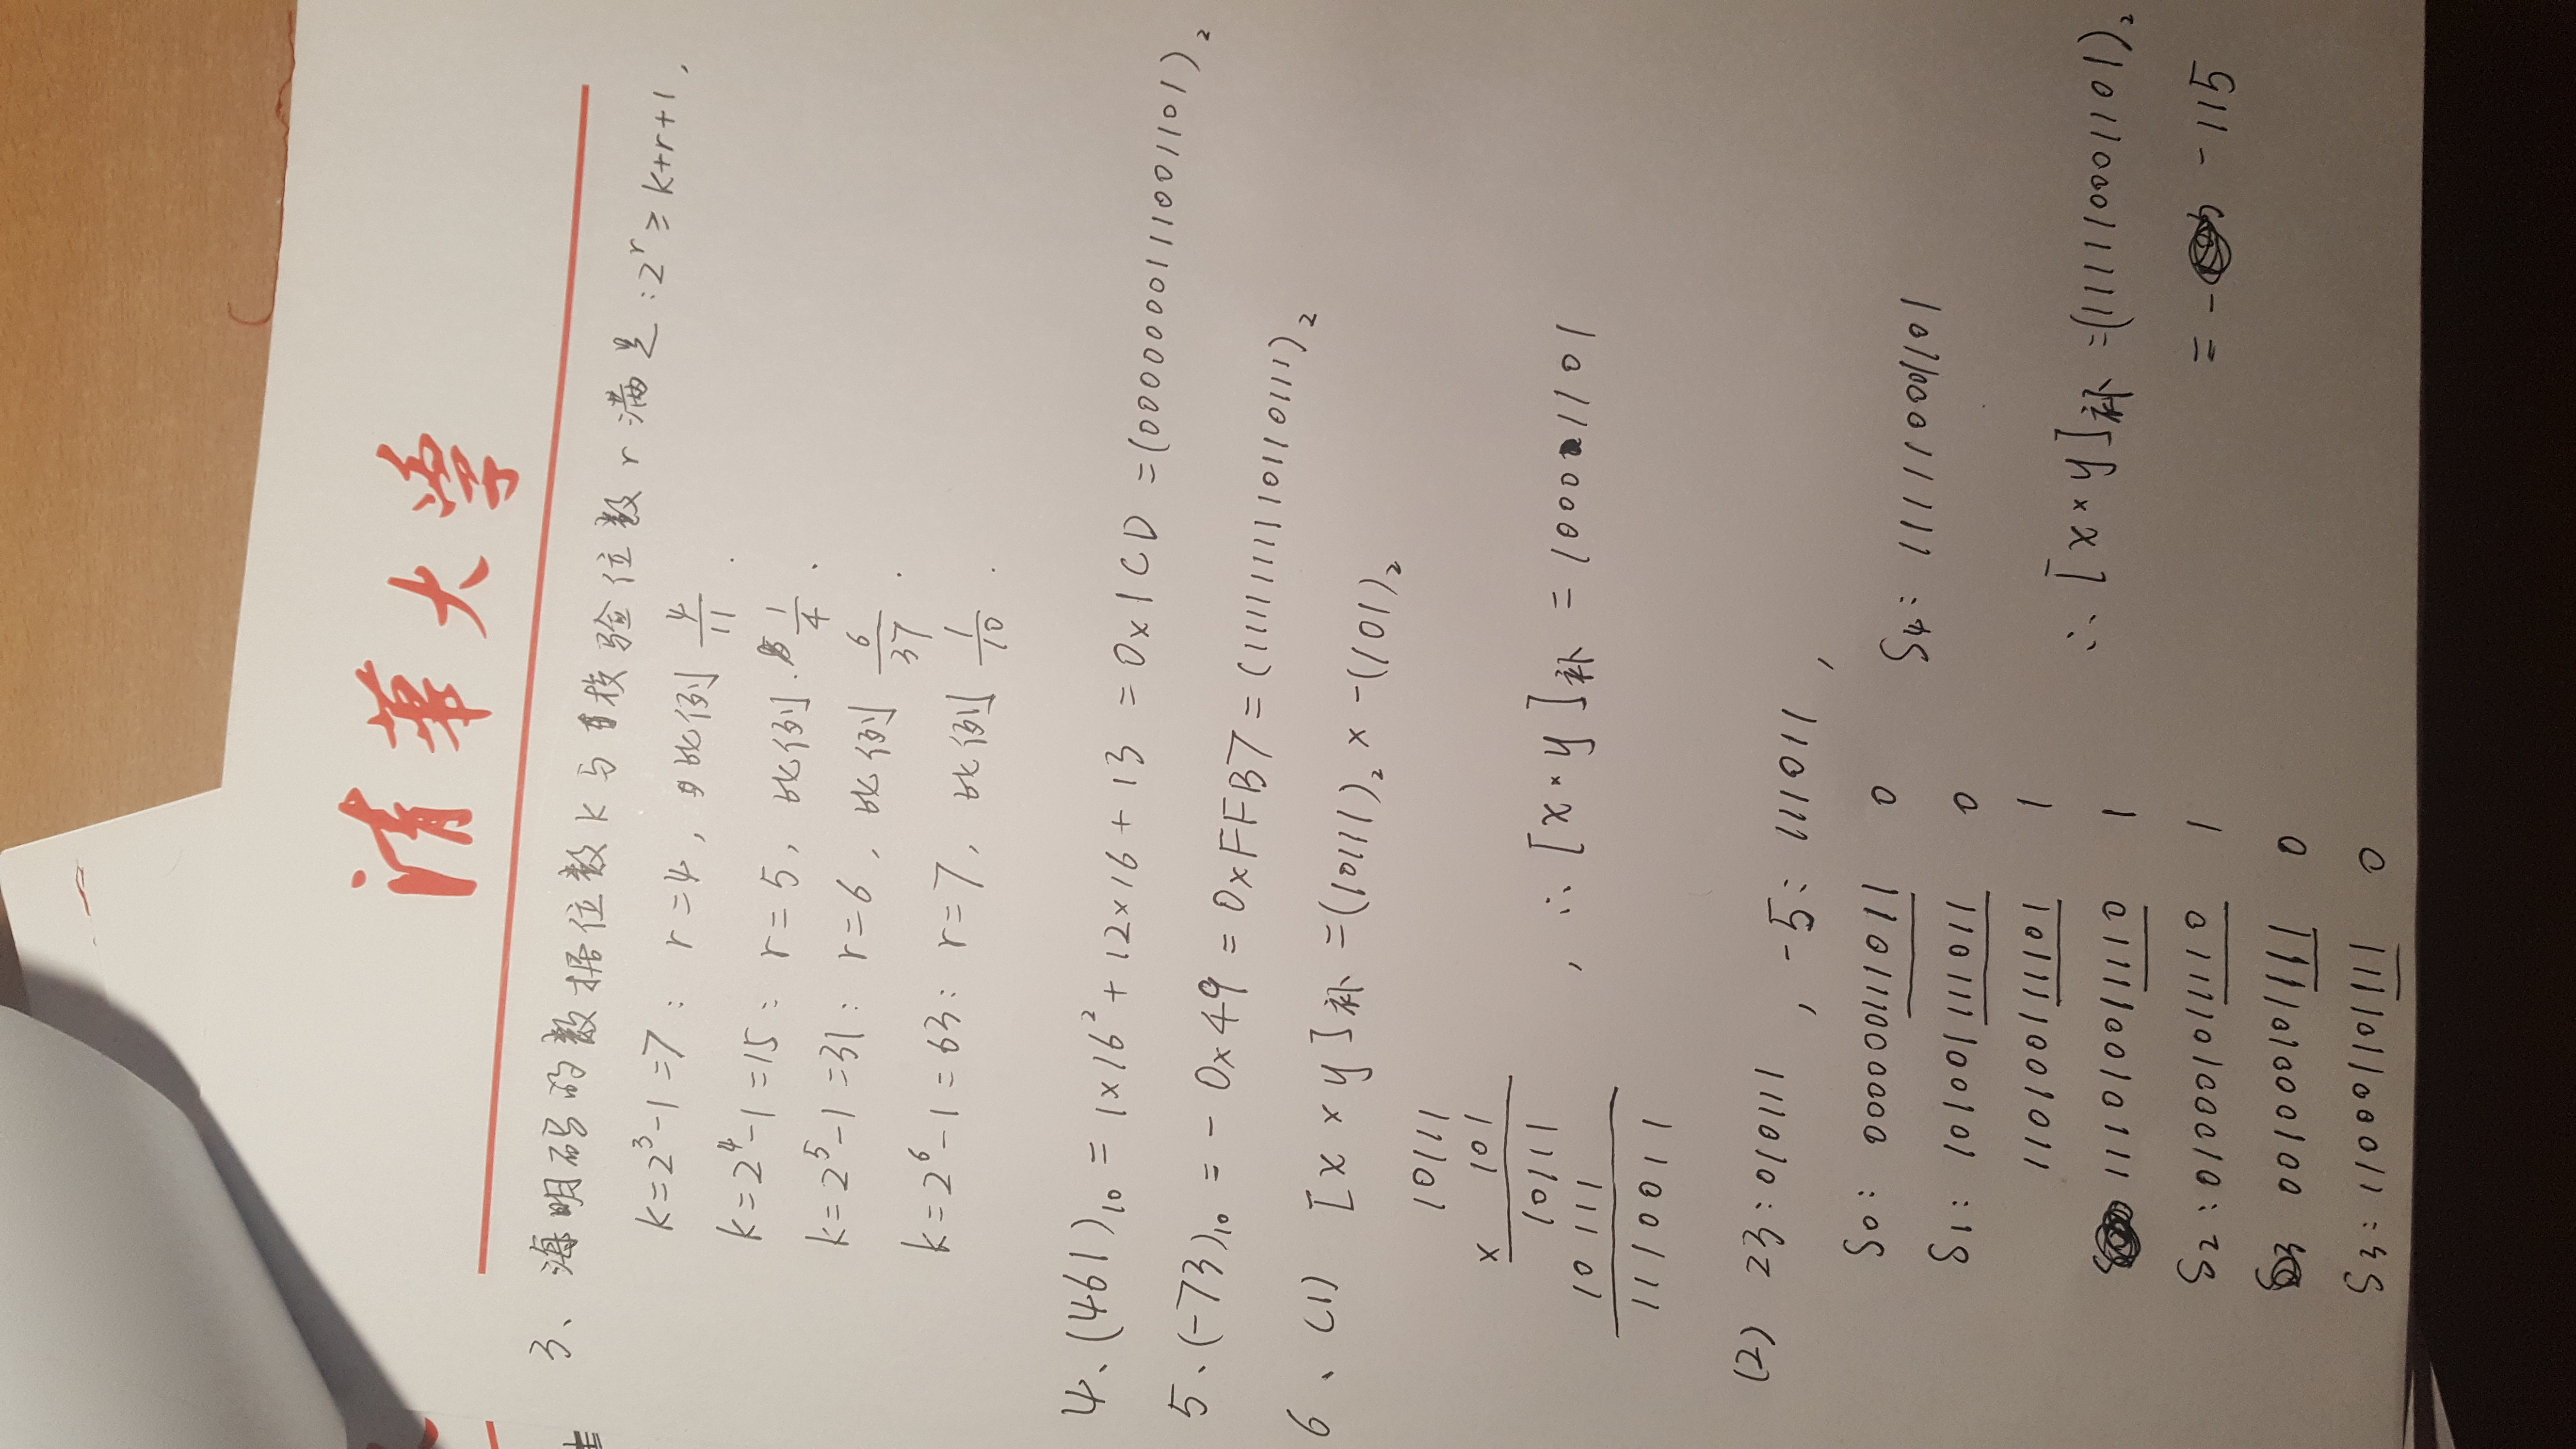 清華大学
3、海明码的数据位数k与校验位数r满足:2^r ≥ k+r+1,
k=2^3-1=7: r=4, 比例 4/11.
k=2^4-1=15: r=5, 比例 1/4.
k=2^5-1=31: r=6, 比例 6/37.
k=2^6-1=63: r=7, 比例 1/10.
4、(461)₁₀ = 1×16²+12×16+13 = 0x1CD = (0000000111001101)₂
5、(-73)₁₀ = -0x49 = 0xFFB7 = (1111111110110111)₂
6、(1) [x×y]补 = (10111)₂ × -(101)₂
10111
× 101
10111
10111
1110011
, ∴ [x×y]补 = 10001101
(2) 23:010111, -5: 111011,
S₀: 000000111011 0
S₁: 101001111011 0
110100111101 1
111010011110 1
S₂: 010001011110 1
001000101111 0
S₃: 110001101111 0
S₄: 111110001101
∴ [x×y]补 = (111110001101)₂
= -115